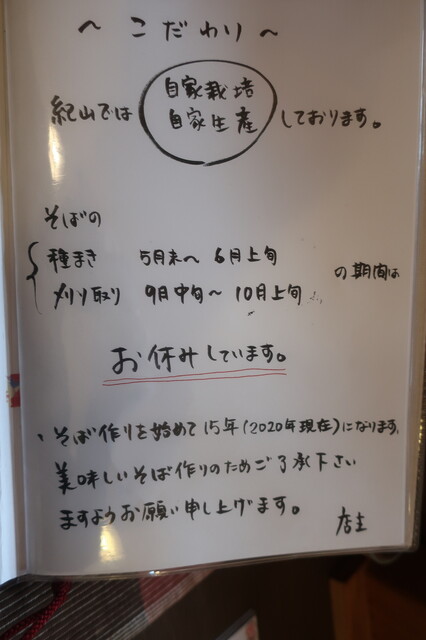 ～ こだわり ～
自家栽培
紀山では 自家生産 しております。
そばの
種まき 5月末〜6月上旬
刈り取り 9月中旬〜10月上旬 の期間は
お休みしています。
、そば作りを始めて15年(2020年現在)になります。
美味しいそば作りのためご了承下さい
ますようお願い申し上げます。
店主